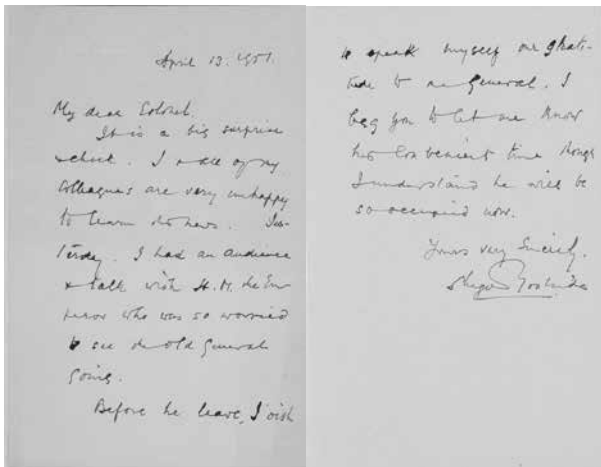 April 13. 1951.
My dear Colonel.
It is a big surprise
& shock. I & all of my
Colleagues are very unhappy
to learn the news. Yes-
terday. I had an audience
& talk with H.M. the Em-
peror who was so worried
to see the old General
going.
Before he leave, I wish
to speak myself our grati-
tude to the General. I
beg you to let me know
his convenient time though
I understand he will be
so occupied now.
Yours very Sincerely.
Shigeru Yoshida